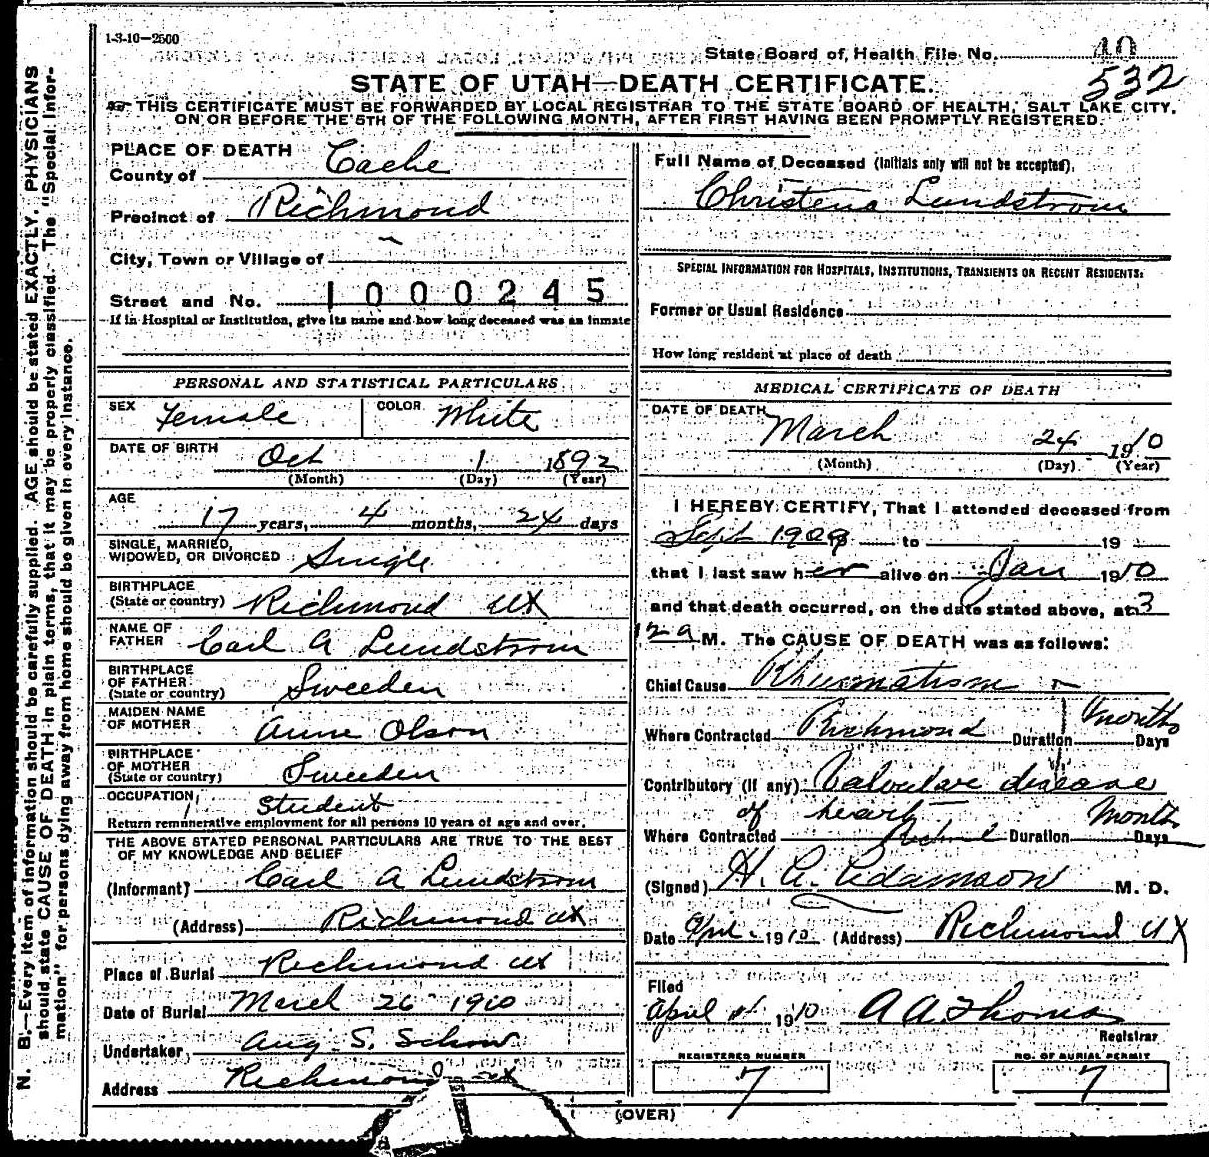 1-3-10—2500
State Board of Health File No. 40
532
STATE OF UTAH—DEATH CERTIFICATE.
THIS CERTIFICATE MUST BE FORWARDED BY LOCAL REGISTRAR TO THE STATE BOARD OF HEALTH, SALT LAKE CITY,
ON OR BEFORE THE 5TH OF THE FOLLOWING MONTH, AFTER FIRST HAVING BEEN PROMPTLY REGISTERED.
N. B.—Every item of information should be carefully supplied. AGE should be stated EXACTLY. PHYSICIANS
should state CAUSE OF DEATH in plain terms, that it may be properly classified. The "Special Infor-
mation" for persons dying away from home should be given in every instance.
PLACE OF DEATH
County of Cache
Precinct of Richmond
City, Town or Village of
Street and No. 1000245
If in Hospital or Institution, give its name and how long deceased was an inmate
PERSONAL AND STATISTICAL PARTICULARS
SEX Female COLOR White
DATE OF BIRTH Oct 1 1892
(Month) (Day) (Year)
AGE
17 years, 4 months, 24 days
SINGLE, MARRIED,
WIDOWED, OR DIVORCED Single
BIRTHPLACE
(State or country) Richmond Ut
NAME OF
FATHER Carl A Lundstrom
BIRTHPLACE
OF FATHER
(State or country) Sweeden
MAIDEN NAME
OF MOTHER Anne Olson
BIRTHPLACE
OF MOTHER
(State or country) Sweeden
OCCUPATION Student
Return remunerative employment for all persons 10 years of age and over.
THE ABOVE STATED PERSONAL PARTICULARS ARE TRUE TO THE BEST
OF MY KNOWLEDGE AND BELIEF
(Informant) Carl A Lundstrom
(Address) Richmond Ut
Place of Burial Richmond Ut
Date of Burial March 26 1910
Undertaker Aug S. Schow
Address Richmond Ut
Full Name of Deceased (Initials only will not be accepted).
Christena Lundstrom
SPECIAL INFORMATION FOR HOSPITALS, INSTITUTIONS, TRANSIENTS OR RECENT RESIDENTS:
Former or Usual Residence
How long resident at place of death
MEDICAL CERTIFICATE OF DEATH
DATE OF DEATH
March 24 1910
(Month) (Day) (Year)
I HEREBY CERTIFY, That I attended deceased from
Sept 1909 to 19
that I last saw her alive on Jan 1910
and that death occurred, on the date stated above, at 3
12 a M. The CAUSE OF DEATH was as follows:
Chief Cause Rhumatism
Where Contracted Richmond Duration months Days
Contributory (if any) Valvulare disease
of heart months
Where Contracted Duration Days
(Signed) H. G. Adamson M. D.
Date Apl 1910 (Address) Richmond Ut
Filed
April 1910 A A Thomas
Registrar
REGISTERED NUMBER
7
NO. OF BURIAL PERMIT
7
(OVER)